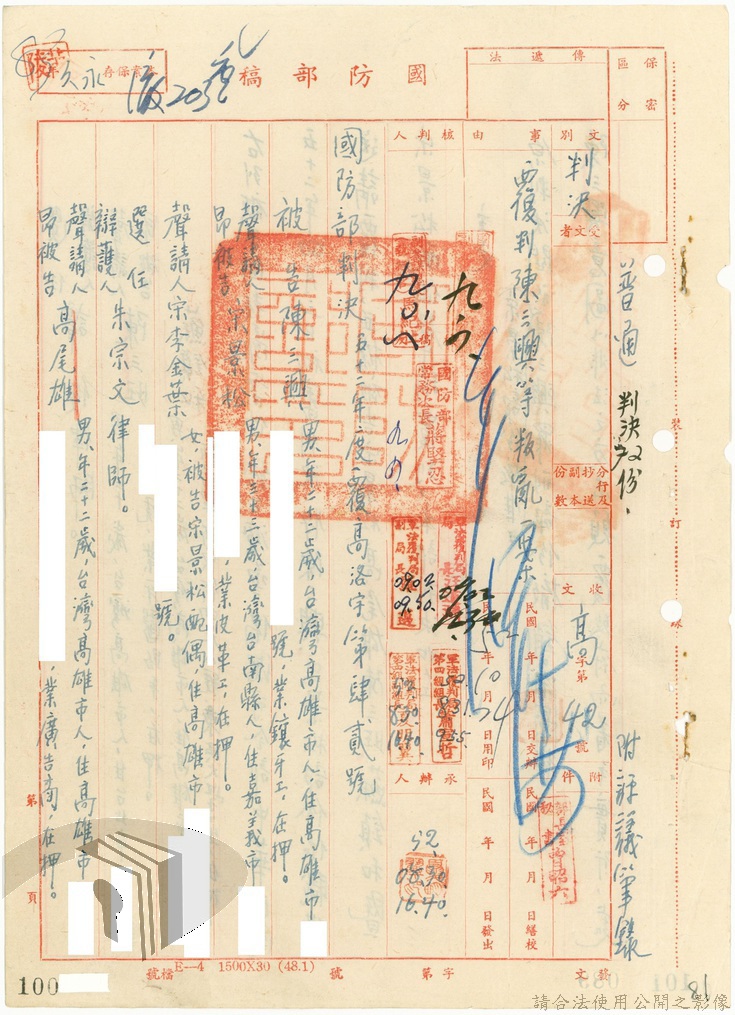 國防部稿
傳遞法
保密區分
檔案保存
永久
文別
判決
受文者
普通
判決72份、
附評議筆錄
事由
覆判陳三興等叛亂一案
核判人
分行及抄送副本份數
收文
高
字第
42
號
附件
國防部常務次長蔣堅忍
民國52年10月4日用印
民國 年 月 日交辦
民國 年 月 日繕校
民國 年 月 日發出
承辦人
52.
08.30
16.40.
國防部判決 五十二年度覆高洛字第肆貳號
被告陳三興 男、年二十二歲,台灣高雄市人,住高雄市
號,業鑲牙工,在押。
聲請人
即被告
宋景松 男、年三十三歲,台灣台南縣人,住嘉義市
,業皮革工,在押。
聲請人宋李金葉 女,被告宋景松配偶,住高雄市
號。
選任
辯護人
朱宗文律師。
聲請人
即被告
高尾雄 男、年二十二歲,台灣高雄市人,住高雄市
,業廣告商,在押。
裝
訂
線
第 頁
檔號
E—4 1500X30 (48.1)
字第 號
發文
100
81
請合法使用公開之影像